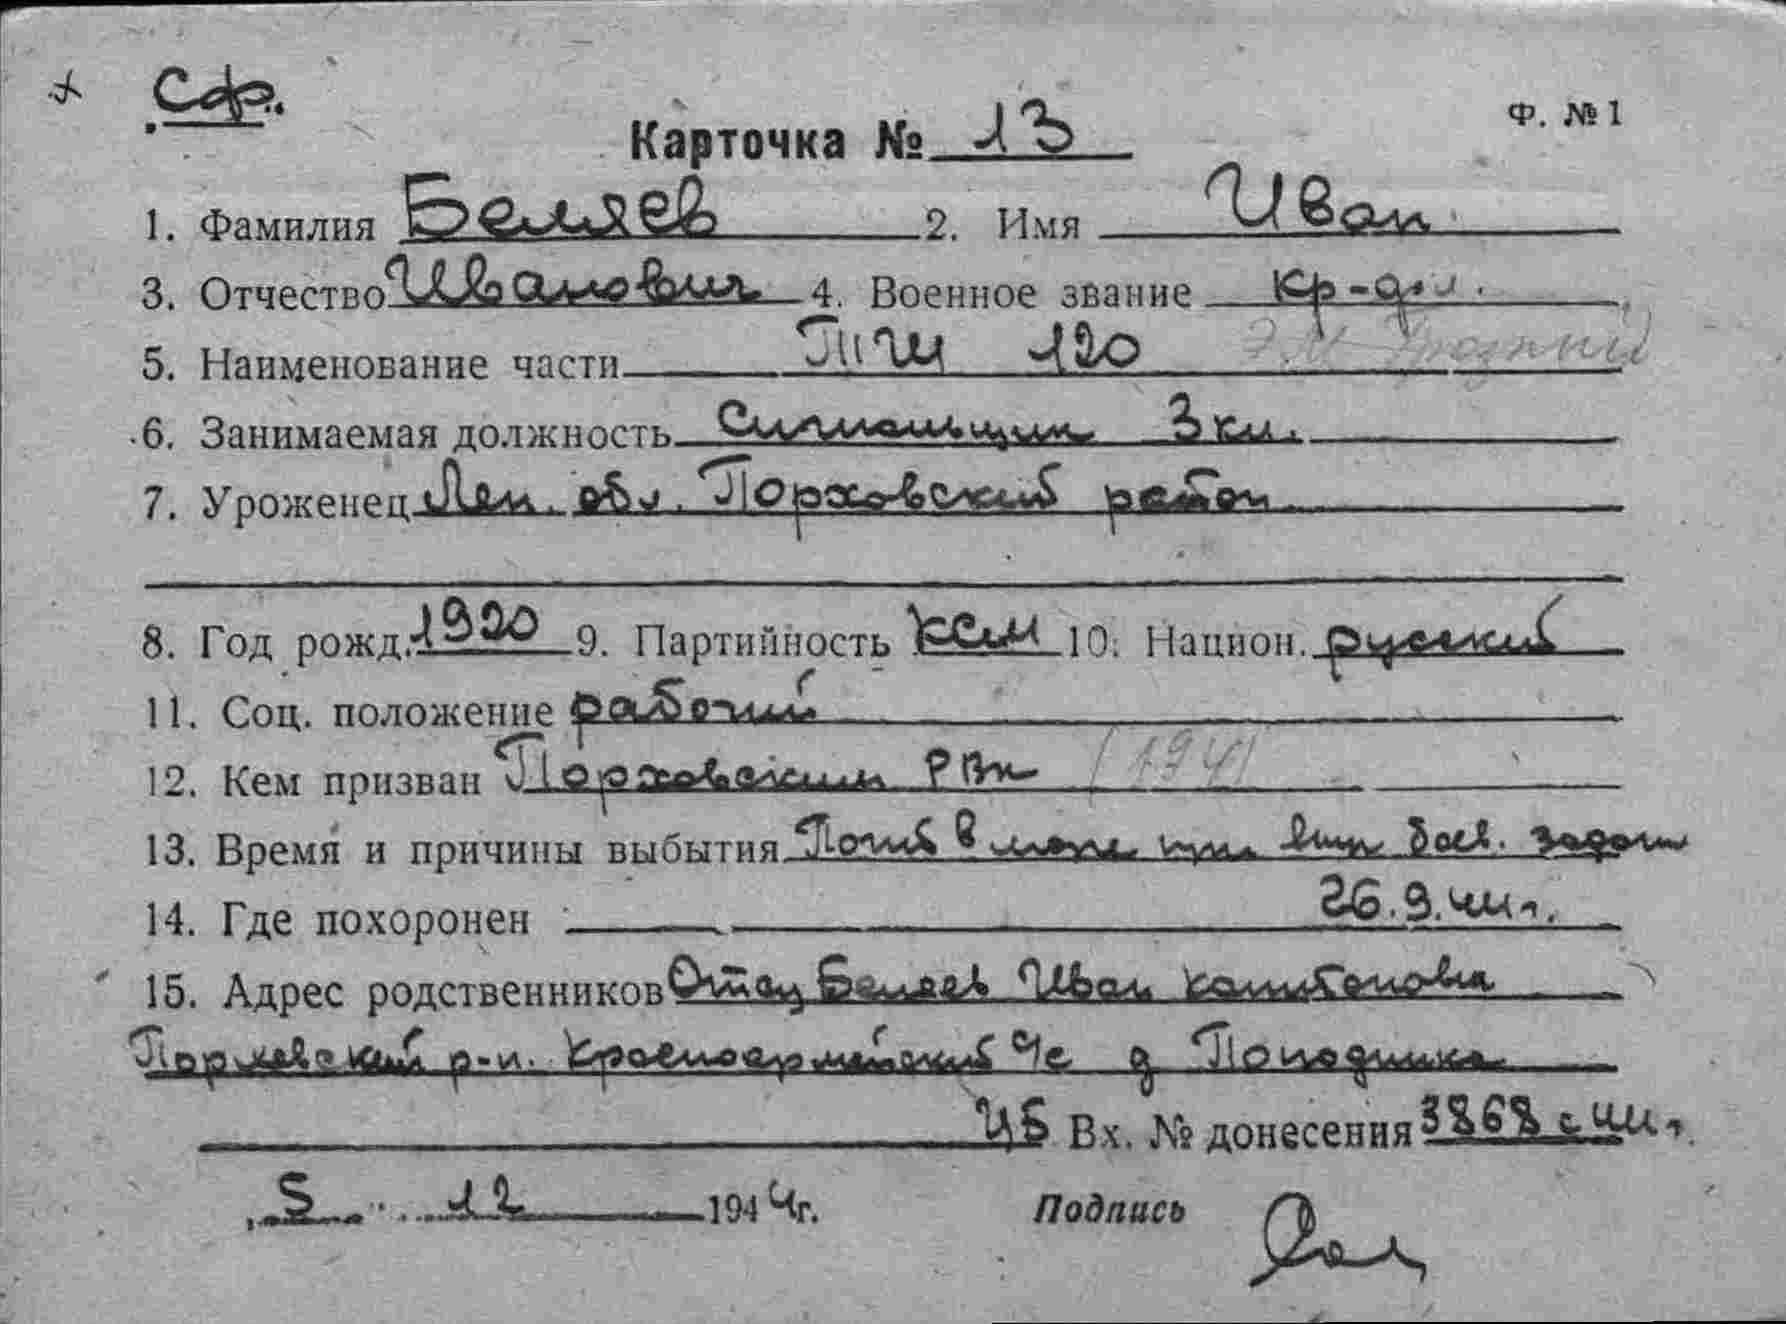 Сф.
Ф. №1
Карточка № 13
1. Фамилия Беляев 2. Имя Иван
3. Отчество Иванович 4. Военное звание кр-фл.
5. Наименование части ТЩ 120
6. Занимаемая должность Сигнальщик 3 кл.
7. Уроженец Лен. обл. Порховский район
8. Год рожд. 1920 9. Партийность ксм 10. Национ. русский
11. Соц. положение рабочий
12. Кем призван Порховским РВК (1941
13. Время и причины выбытия Погиб в море при вып. боев. задачи
14. Где похоронен 26.9.44г.
15. Адрес родственников Отец Беляев Иван
Порховский р-н. Красноармейский с/с д.
ЦБ Вх. № донесения 3868 с 44г.
5 12 1944г. Подпись